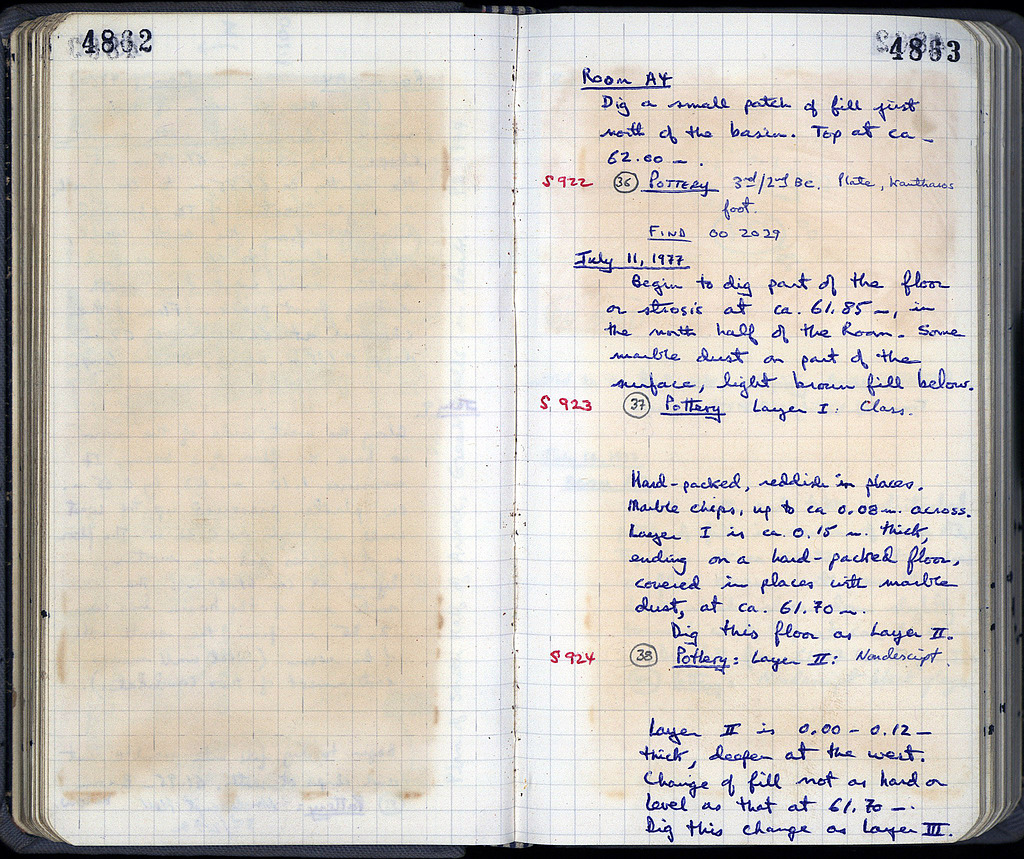 4862
4863
Room A4
Dig a small patch of fill just
north of the basin. Top at ca
62.00 m.
S 922 36 POTTERY 3rd/2nd BC. Plate, kantharos
foot.
FIND 00 2029
July 11, 1977
Begin to dig part of the floor
or strosis at ca. 61.85 m, in
the north half of the Room. Some
marble dust on part of the
surface, light brown fill below.
S 923 37 Pottery Layer I: Class.
Hard-packed, reddish in places.
Marble chips, up to ca 0.08 m. across.
Layer I is ca. 0.15 m. thick,
ending on a hard-packed floor,
covered in places with marble
dust, at ca. 61.70 m.
Dig this floor as Layer II.
S 924 38 Pottery: Layer II: Nondescript.
Layer II is 0.00 - 0.12 m
thick, deeper at the west.
Change of fill not as hard or
level as that at 61.70 m.
Dig this change as Layer III.